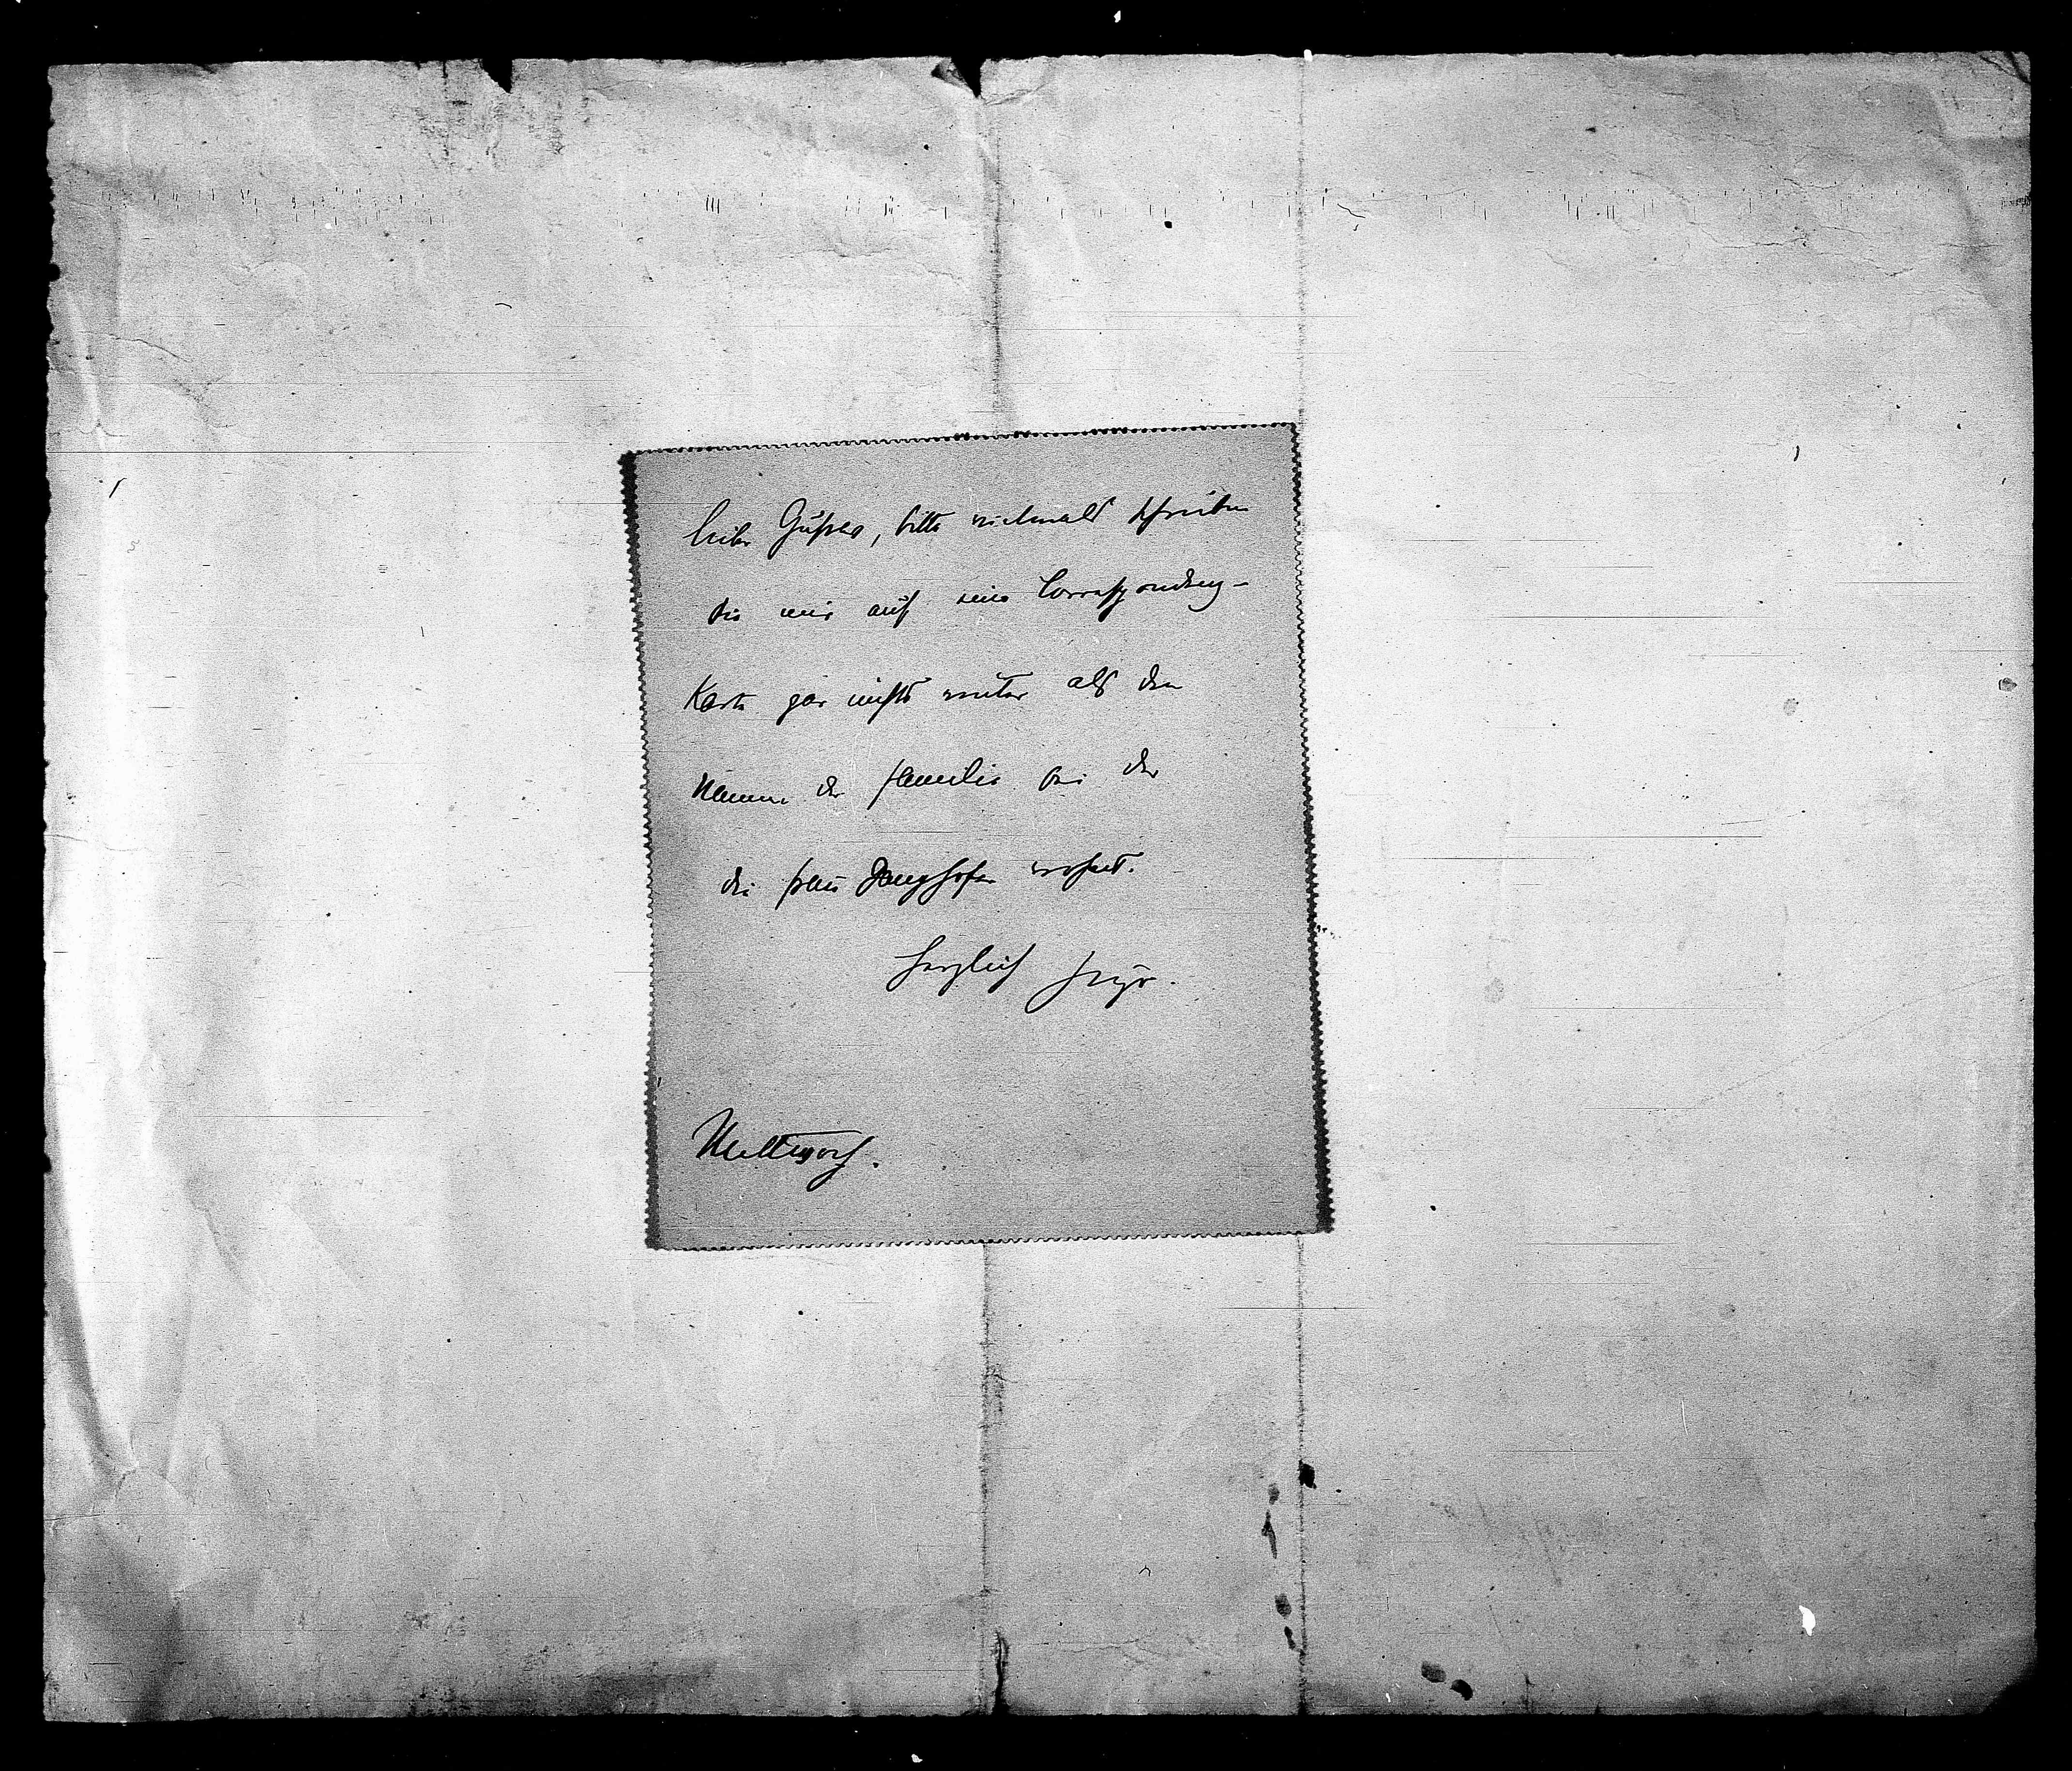 lieber Gustav, bitte vielmals schreiben
Sie mir auf eine Correspondenz-
Karte gar nichts weiter als den
Namen der Familie bei der
die Frau wohnt.
Herzlich Hugo.
Mittwoch.